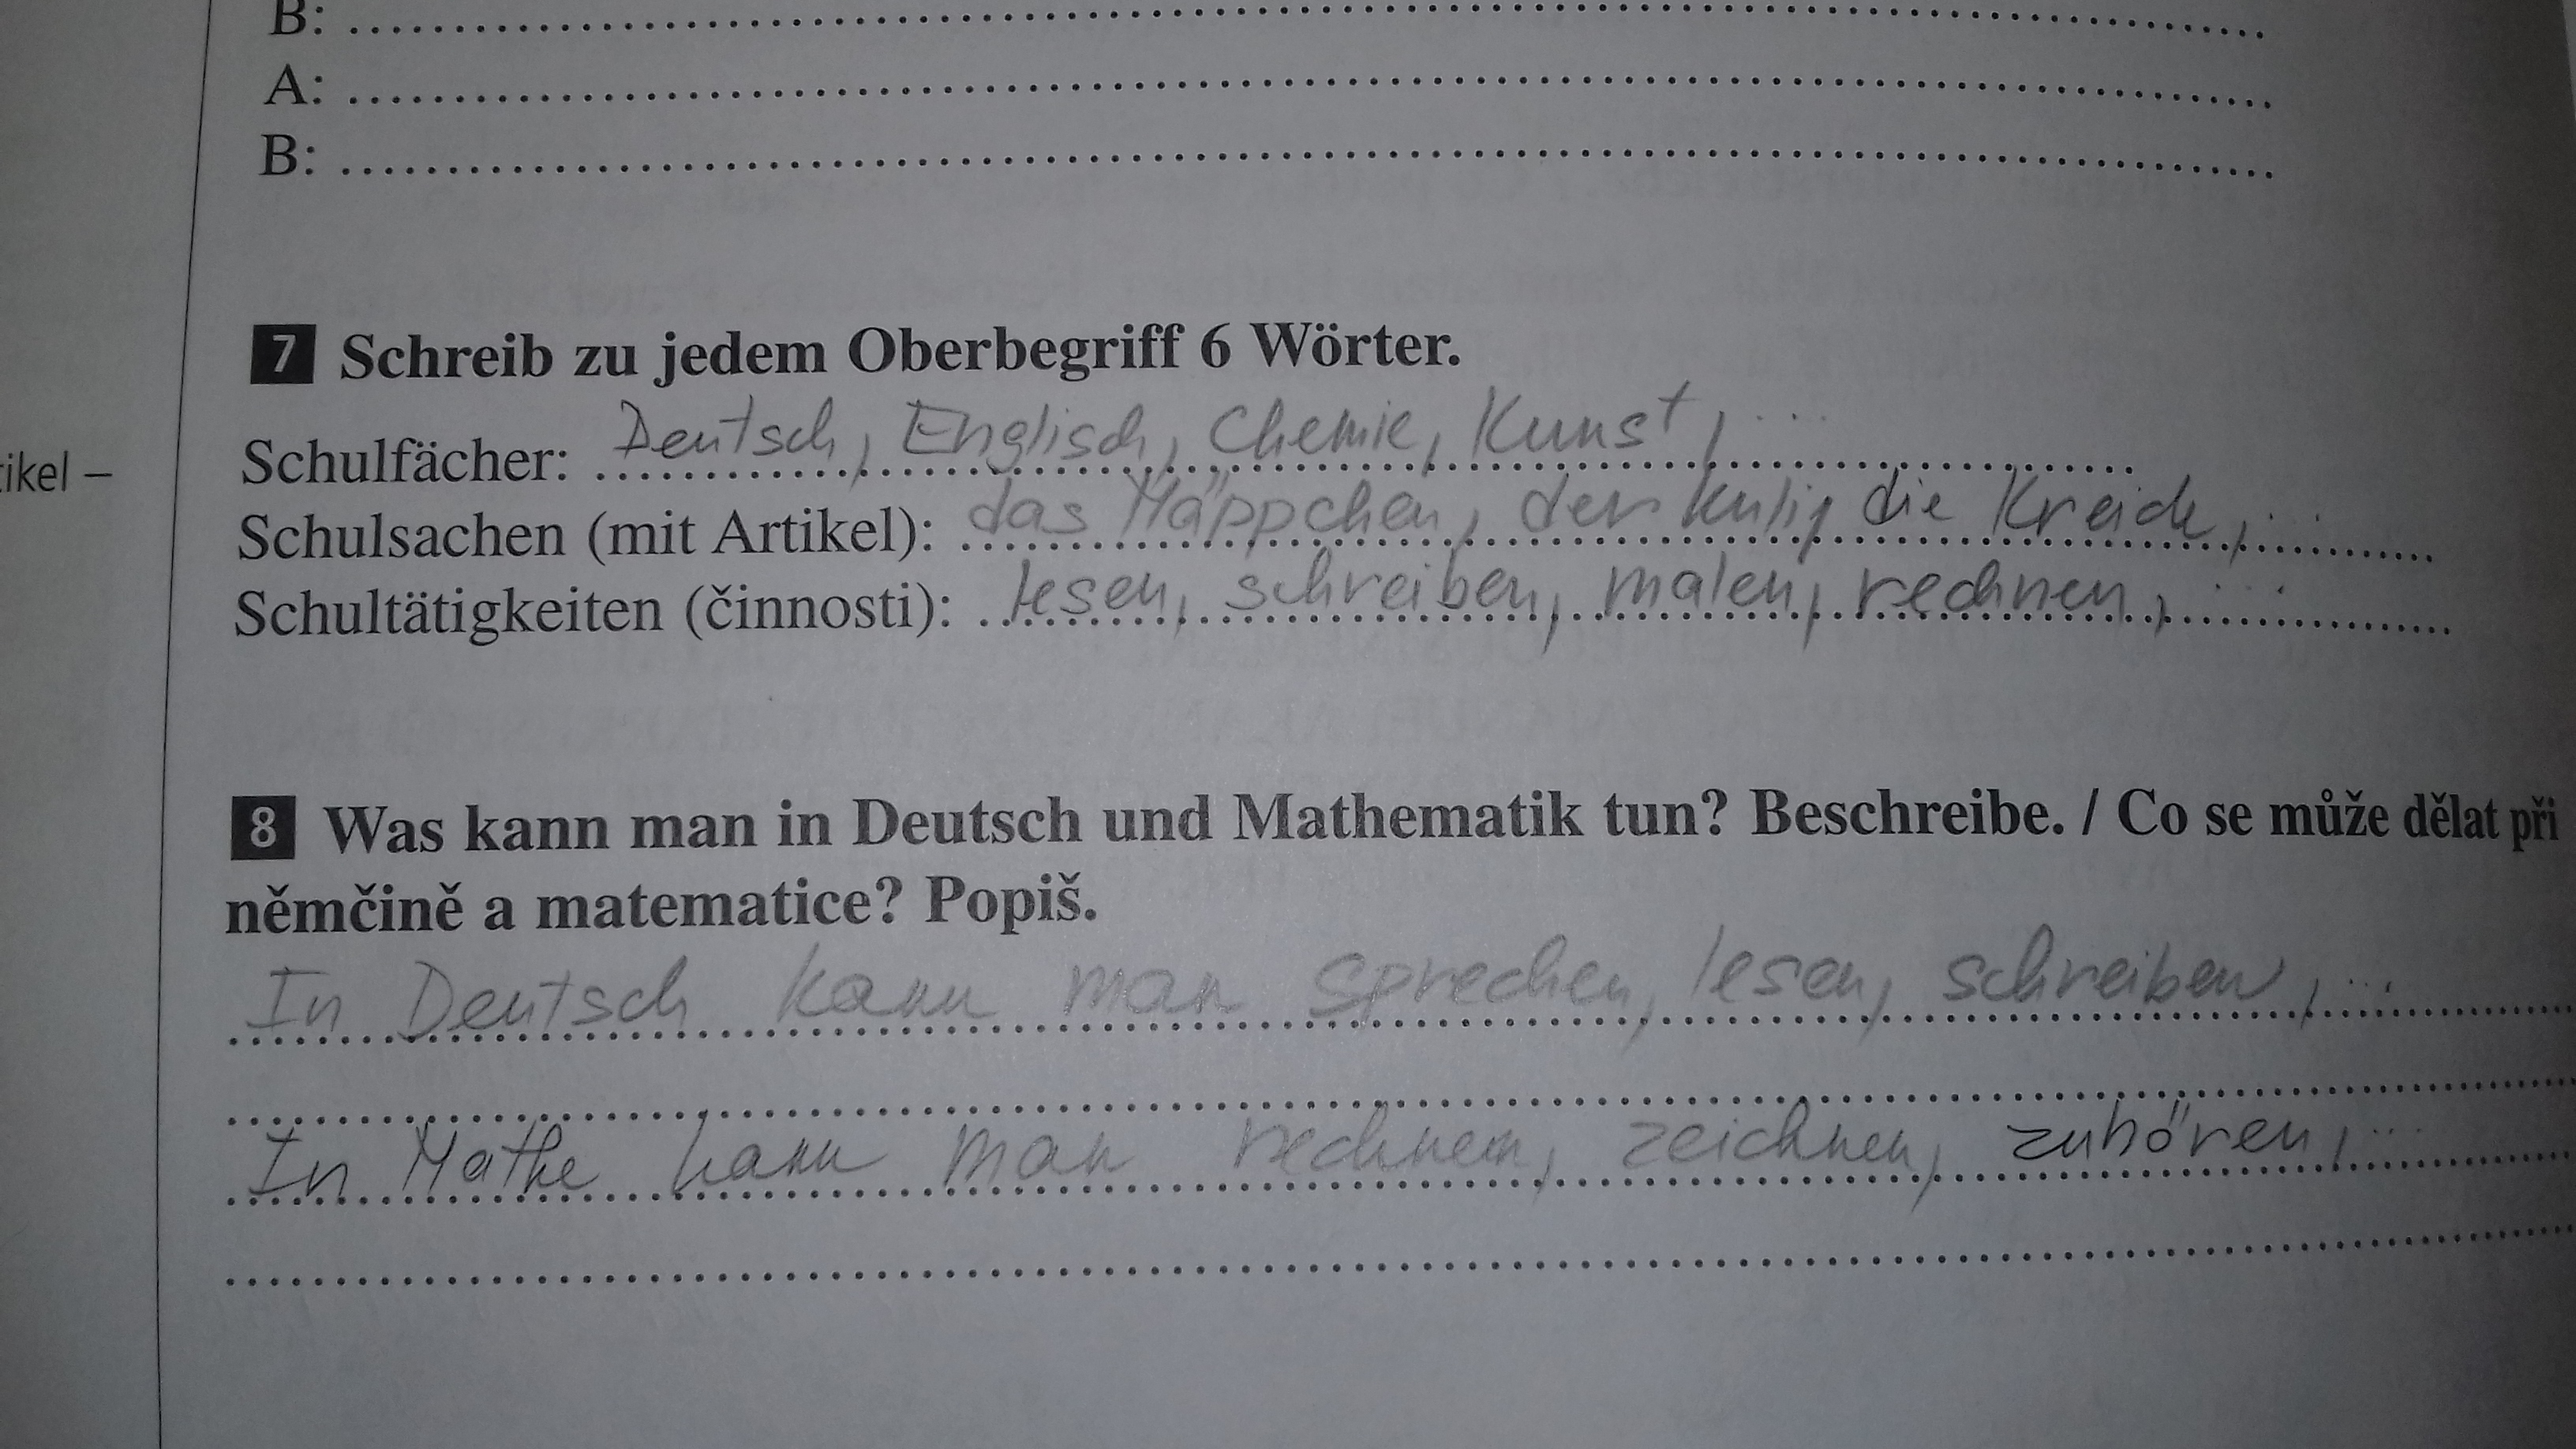 B: ........
A: ........
B: ........
7 Schreib zu jedem Oberbegriff 6 Wörter.
Schulfächer: Deutsch, Englisch, Chemie, Kunst, ...
tikel –
Schulsachen (mit Artikel): das Mäppchen, der Kuli, die Kreide, ...
Schultätigkeiten (činnosti): lesen, schreiben, malen, rechnen, ...
8 Was kann man in Deutsch und Mathematik tun? Beschreibe. / Co se může dělat při
němčině a matematice? Popiš.
In Deutsch kann man sprechen, lesen, schreiben, ...
In Mathe kann man rechnen, zeichnen, zuhören, ...